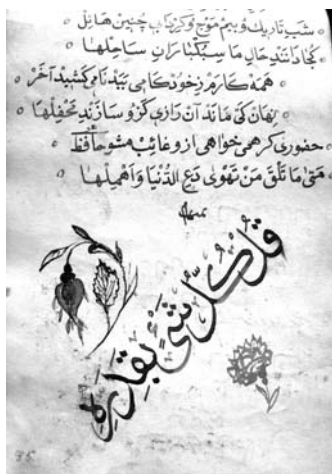 شب تاریک و بیم موج و گرداب چنین هائل
کجا دانند حال ما سبکباران ساحلها
همه کارم ز خود کامی ببدنامی کشید آخر
نهان کی ماند آن رازی کزو سازند محفلها
حضوری گر همی خواهی ازو غایب مشو حافظ
مَتیٰ مَا تَلْقَ مَنْ تَهْویٰ دَعِ الدُّنْیَا وَاَهْمِلْهَا
قل کلُّ شیءٍ